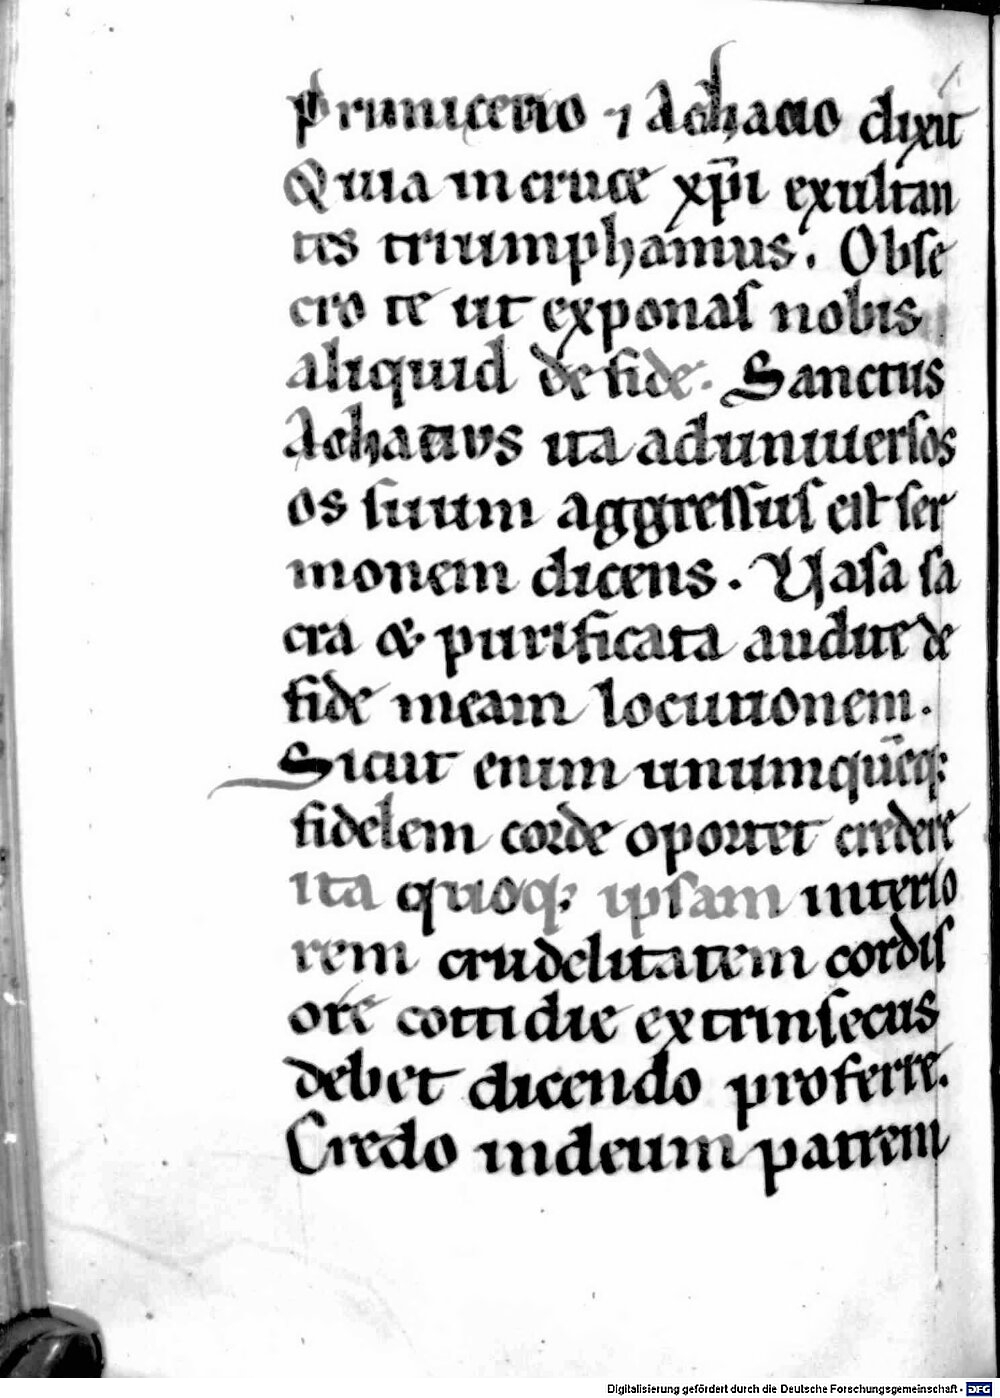 Primicerio ⁊ Achacio dixit
Quia in cruce xp̄i exultan
tes triumphamus. Obse
cro te ut exponas nobis
aliquid de fide. Sanctus
Achacius ita ad universos
os suum aggressus est ser
monem dicens. Vasa sa
cra & purificata audite de
fide meam locutionem.
Sicut enim unumqūeq;
fidelem corde oportet credere
ita quoq; ipsam interio
rem crudelitatem cordis
ore cottidie extrinsecus
debet dicendo proferre.
Credo in deum patrem
Digitalisierung gefördert durch die Deutsche Forschungsgemeinschaft - DFG